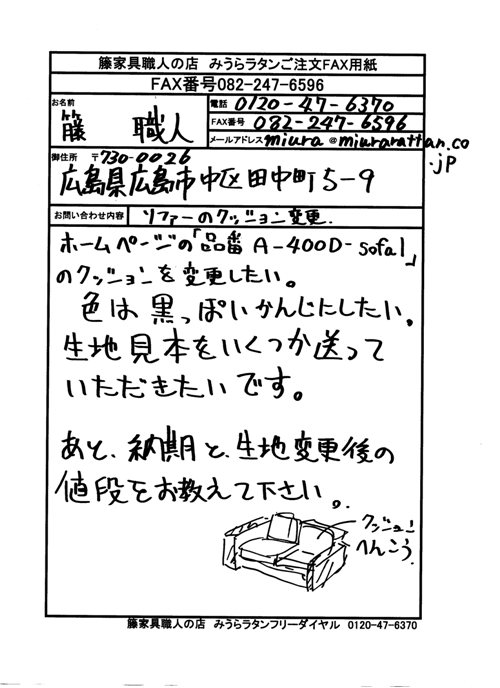 籐家具職人の店 みうらラタンご注文FAX用紙
FAX番号082-247-6596
お名前
籐 職人
電話 0120-47-6370
FAX番号 082-247-6596
メールアドレス miura@miurarattan.co.jp
御住所 〒730-0026
広島県広島市中区田中町5-9
お問い合わせ内容 ソファーのクッション変更.
ホームページの「品番A-400D-sofa1」
のクッションを変更したい。
色は黒っぽいかんじにしたい。
生地見本をいくつか送って
いただきたいです。
あと、納期と、生地変更後の
値段をお教えて下さい。
クッション
へんこう.
籐家具職人の店 みうらラタンフリーダイヤル 0120-47-6370